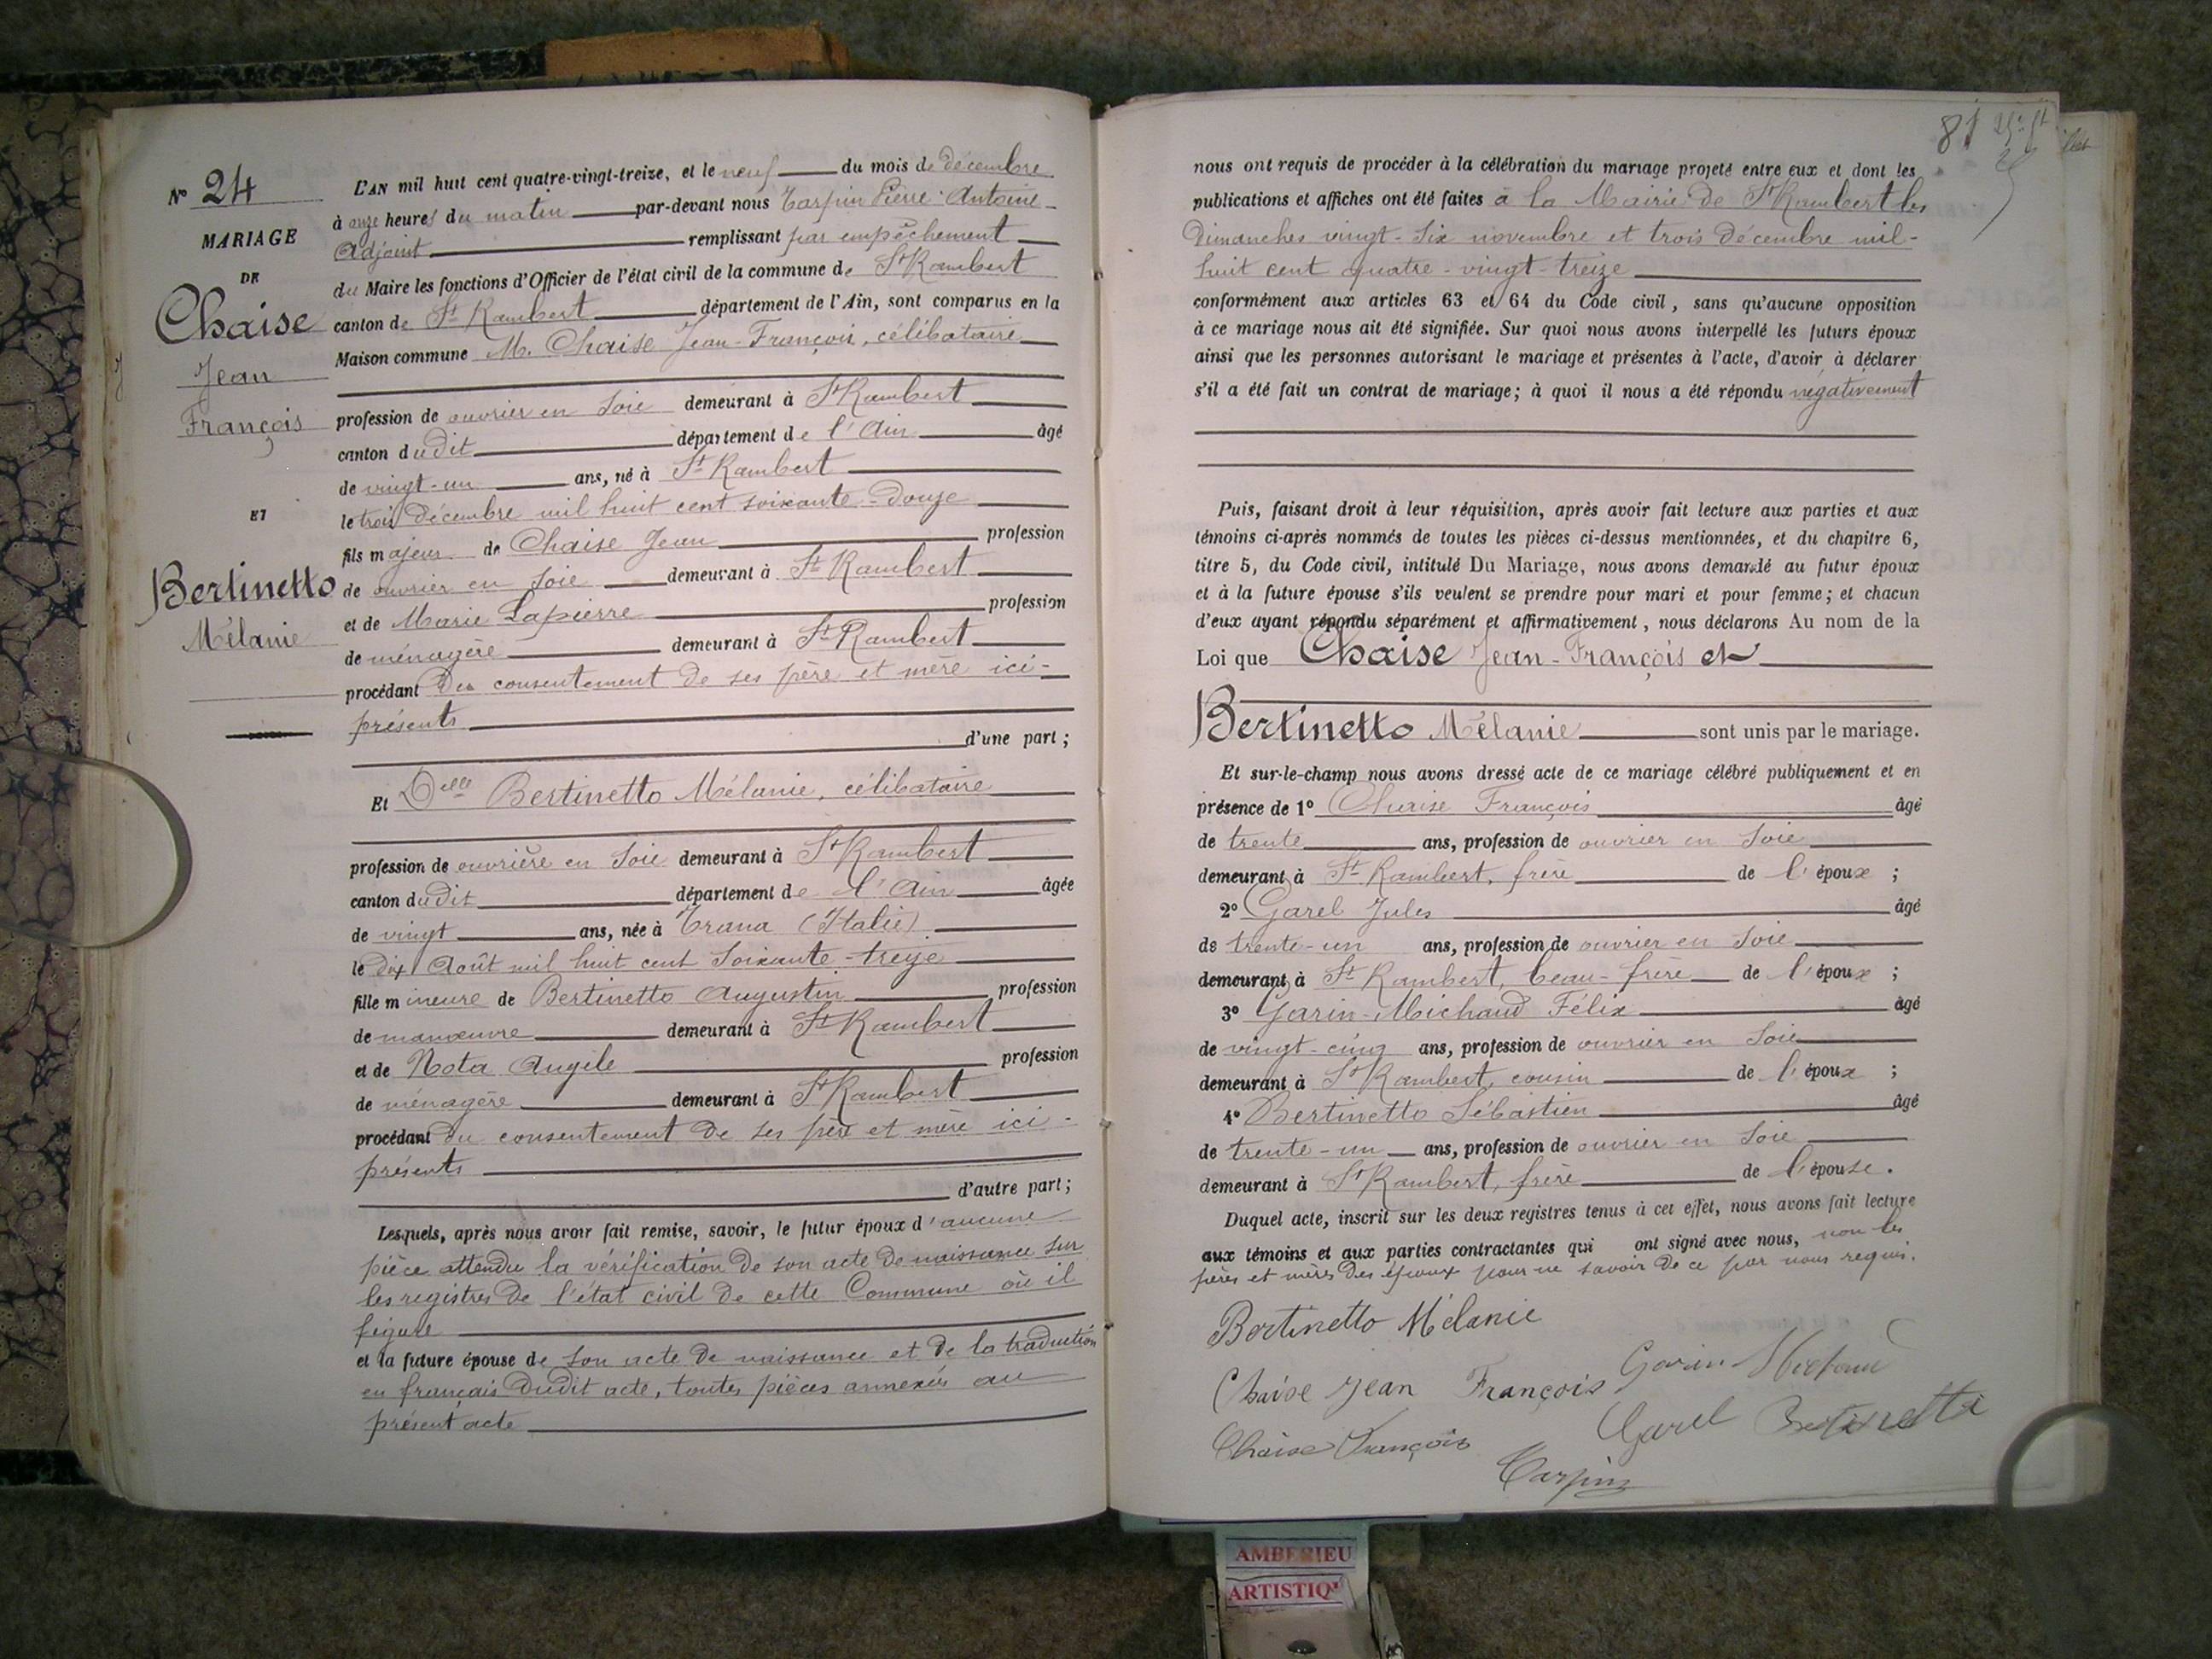 N° 24
MARIAGE
DE
Chaise
Jean
François
ET
Bertinetto
Mélanie
L'AN mil huit cent quatre-vingt-treize, et le neuf du mois de décembre
à onze heures du matin par-devant nous Tarpin Pierre-Antoine
Adjoint remplissant par empêchement
du Maire les fonctions d'Officier de l'état civil de la commune de St Rambert
canton de St Rambert département de l'Ain, sont comparus en la
Maison commune M. Chaise Jean-François, célibataire
profession de ouvrier en soie demeurant à St Rambert
canton dudit département de l'Ain âgé
de vingt-un ans, né à St Rambert
le trois décembre mil huit cent soixante-douze
fils majeur de Chaise Jean profession
de ouvrier en soie demeurant à St Rambert
et de Marie Lapierre profession
de ménagère demeurant à St Rambert
procédant du consentement de ses père et mère ici-
présents
d'une part ;
Et Delle Bertinetto Mélanie, célibataire
profession de ouvrière en soie demeurant à St Rambert
canton dudit département de l'Ain âgée
de vingt ans, née à Trana (Italie)
le dix Août mil huit cent soixante-treize
fille mineure de Bertinetto Augustin profession
de manœuvre demeurant à St Rambert
et de Nota Angèle profession
de ménagère demeurant à St Rambert
procédant du consentement de ses père et mère ici-
présents
d'autre part ;
Lesquels, après nous avoir fait remise, savoir, le futur époux d'aucune
pièce attendu la vérification de son acte de naissance sur
les registres de l'état civil de cette Commune où il
figure
et la future épouse de son acte de naissance et de la traduction
en français dudit acte, toutes pièces annexées au
présent acte
81
nous ont requis de procéder à la célébration du mariage projeté entre eux et dont les
publications et affiches ont été faites à la Mairie de St Rambert les
Dimanches vingt-six novembre et trois décembre mil-
huit cent quatre-vingt-treize
conformément aux articles 63 et 64 du Code civil, sans qu'aucune opposition
à ce mariage nous ait été signifiée. Sur quoi nous avons interpellé les futurs époux
ainsi que les personnes autorisant le mariage et présentes à l'acte, d'avoir à déclarer
s'il a été fait un contrat de mariage ; à quoi il nous a été répondu négativement
Puis, faisant droit à leur réquisition, après avoir fait lecture aux parties et aux
témoins ci-après nommés de toutes les pièces ci-dessus mentionnées, et du chapitre 6,
titre 5, du Code civil, intitulé Du Mariage, nous avons demandé au futur époux
et à la future épouse s'ils veulent se prendre pour mari et pour femme ; et chacun
d'eux ayant répondu séparément et affirmativement, nous déclarons Au nom de la
Loi que Chaise Jean-François et
Bertinetto Mélanie sont unis par le mariage.
Et sur-le-champ nous avons dressé acte de ce mariage célébré publiquement et en
présence de 1° Chaise François âgé
de trente ans, profession de ouvrier en soie
demeurant à St Rambert, frère de l'époux ;
2° Garel Jules âgé
de trente-un ans, profession de ouvrier en soie
demeurant à St Rambert, beau-frère de l'époux ;
3° Garin-Michaud Félix âgé
de vingt-cinq ans, profession de ouvrier en soie
demeurant à St Rambert, cousin de l'époux ;
4° Bertinetto Sébastien âgé
de trente-un ans, profession de ouvrier en soie
demeurant à St Rambert, frère de l'épouse.
Duquel acte, inscrit sur les deux registres tenus à cet effet, nous avons fait lecture
aux témoins et aux parties contractantes qui ont signé avec nous, non les
pères et mères des époux pour ne savoir de ce par nous requis.
Bertinetto Mélanie
Chaise Jean François Garin Michaud
Chaise François Garel Bertinetto
Tarpin
AMBERIEU
ARTISTIQ